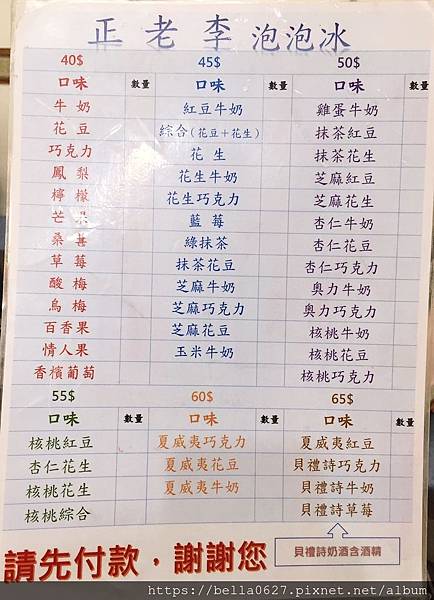 正老李泡泡冰
40$ 45$ 50$
口味 數量 口味 數量 口味 數量
牛奶 紅豆牛奶 雞蛋牛奶
花豆 綜合(花豆+花生) 抹茶紅豆
巧克力 花生 抹茶花生
鳳梨 花生牛奶 芝麻紅豆
檸檬 花生巧克力 芝麻花生
芒果 藍莓 杏仁牛奶
桑葚 綠抹茶 杏仁花豆
草莓 抹茶花豆 杏仁巧克力
酸梅 芝麻牛奶 奧力牛奶
烏梅 芝麻巧克力 奧力巧克力
百香果 芝麻花豆 核桃牛奶
情人果 玉米牛奶 核桃花豆
香檳葡萄 核桃巧克力
55$ 60$ 65$
口味 數量 口味 數量 口味 數量
核桃紅豆 夏威夷巧克力 夏威夷紅豆
杏仁花生 夏威夷花豆 貝禮詩巧克力
核桃花生 夏威夷牛奶 貝禮詩牛奶
核桃綜合 貝禮詩草莓
請先付款,謝謝您
貝禮詩奶酒含酒精
https://bella0627.pixnet.net/album